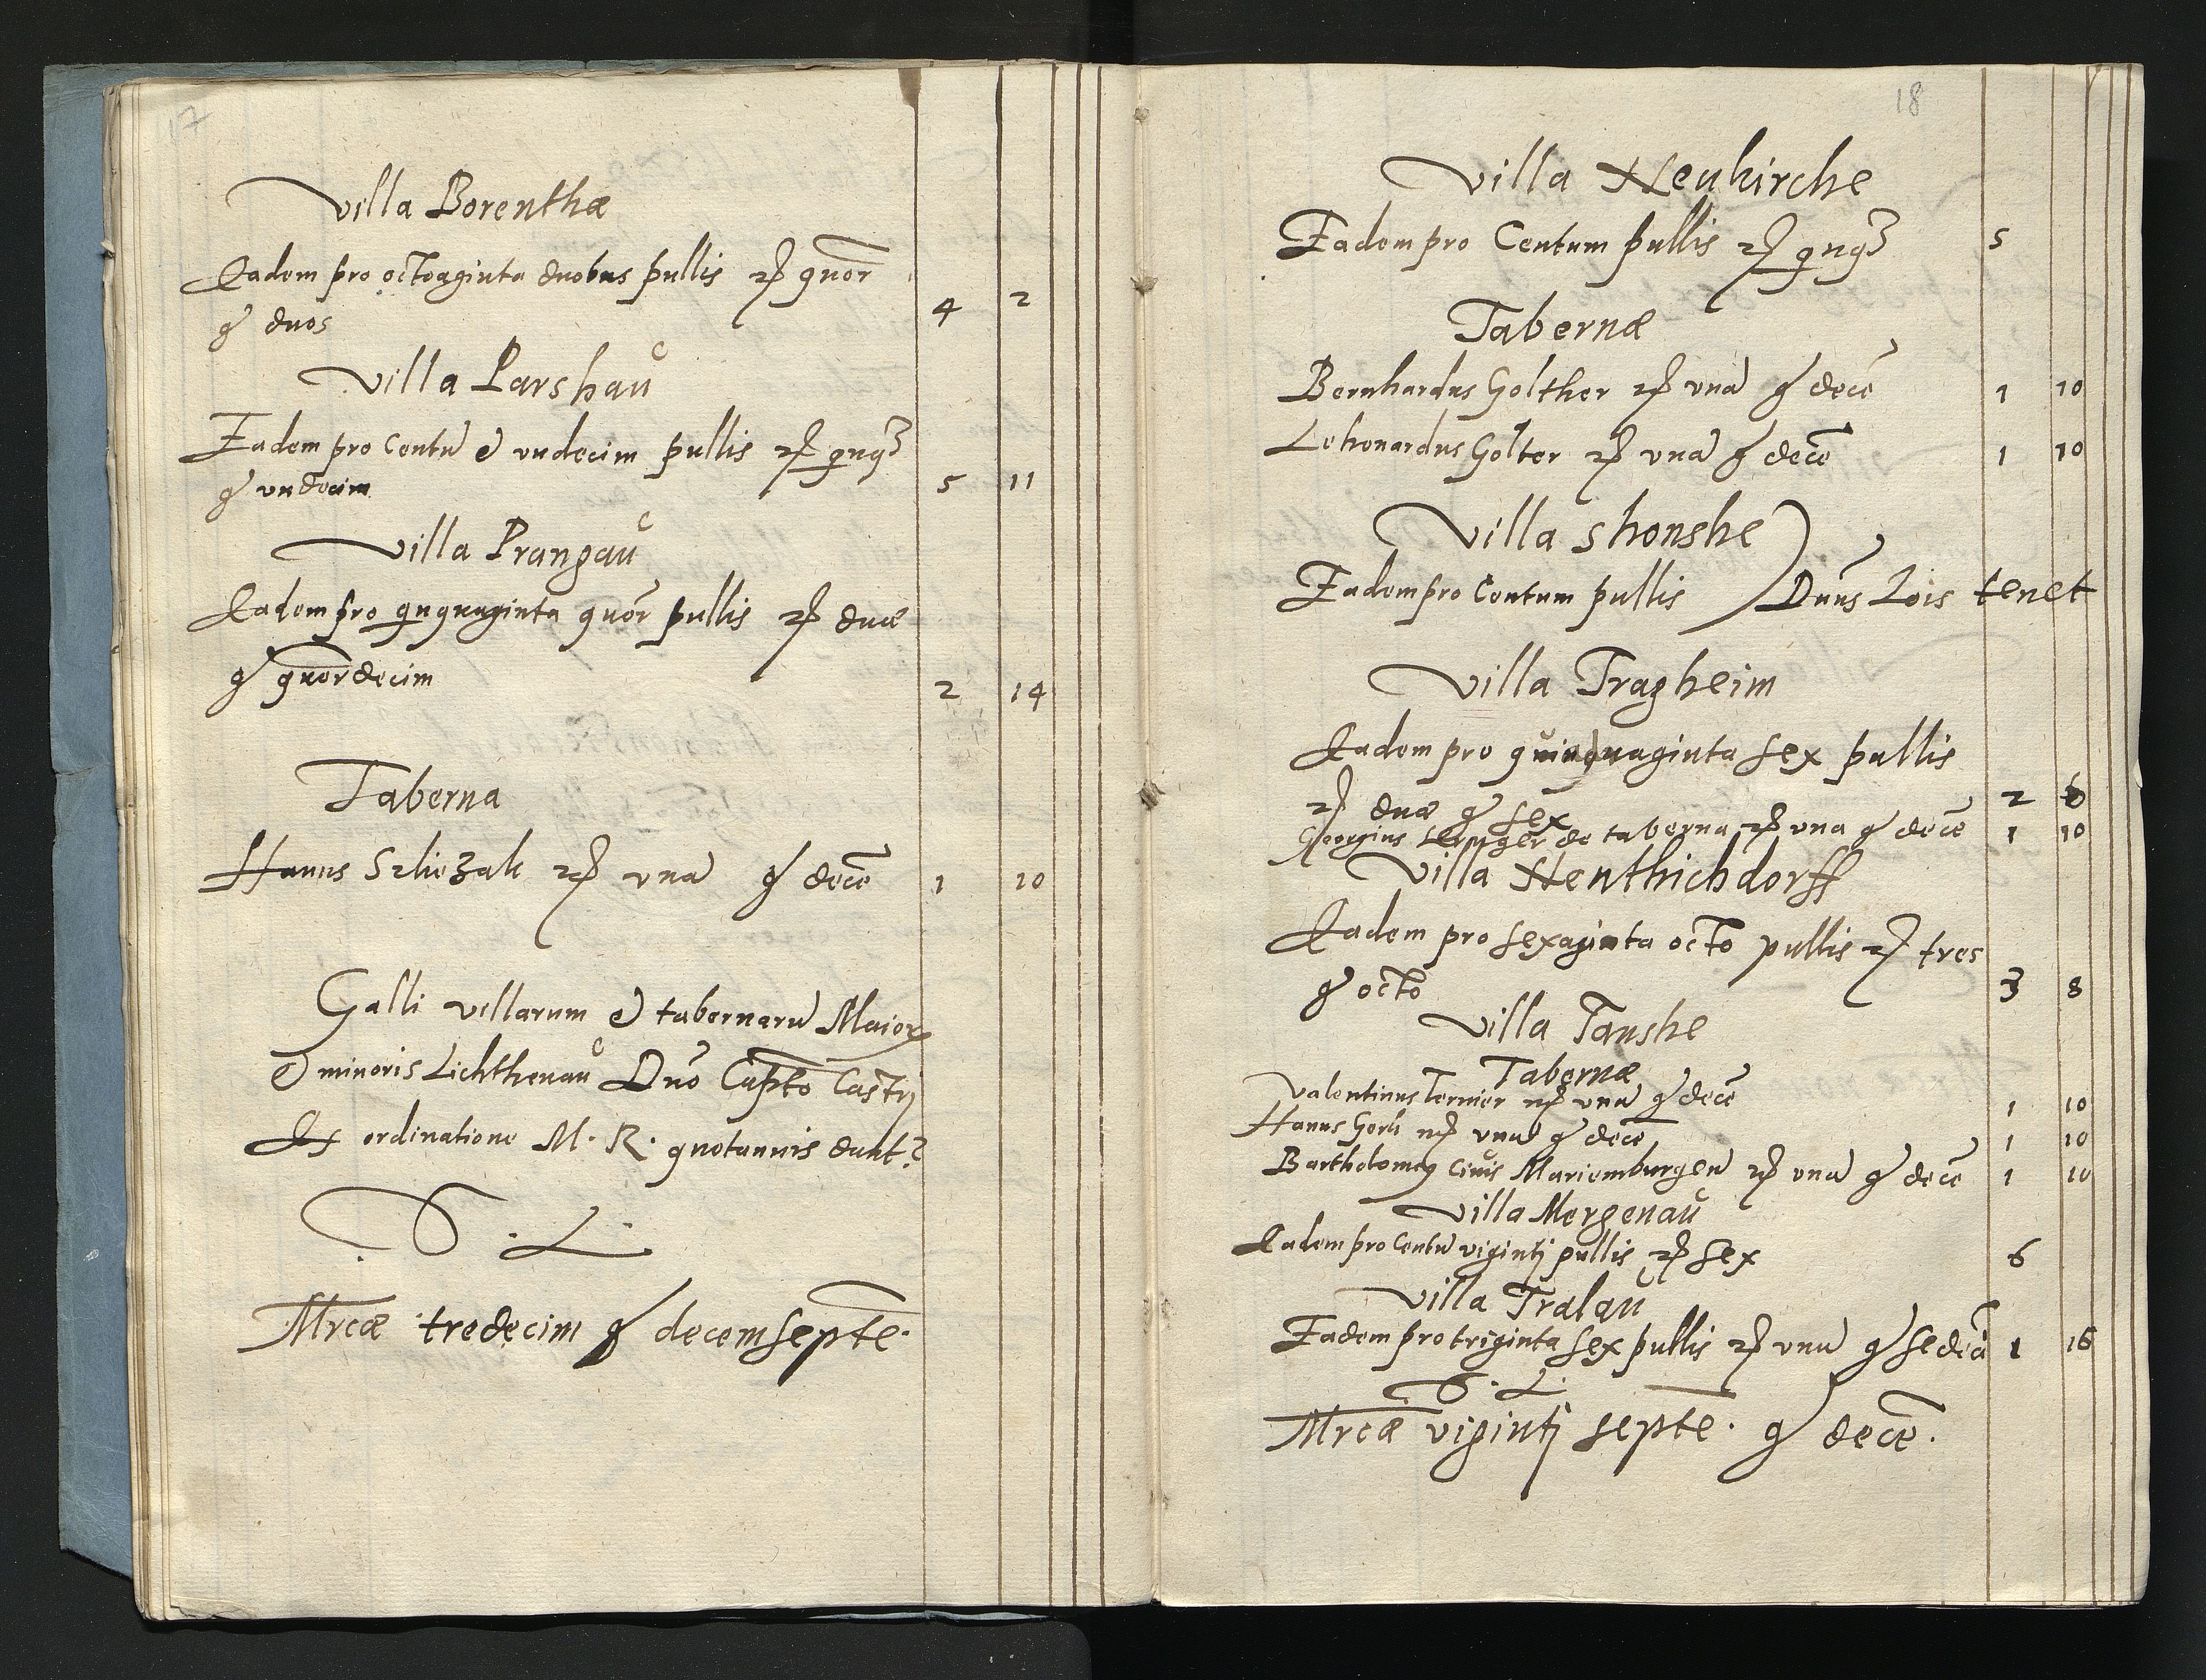 17
Villa Borenthæ
Eadem pro octoaginta duobus pullis mʀ quor
gr duos 4 2
Villa Parshau
Eadem pro Centu et undecim pullis mʀ qnqʒ
gr undecim 5 11
Villa Prangau
Eadem pro qnquaginta quor pullis mʀ duæ
gr quordecim 2 14
Taberna
Hanns Szliezak mʀ una gr dece 1 10
Galli villarum et tabernaru Maior
et minoris Lichthenau Dno Capto Castrj
Ex ordinatione M. R. quotannis dant
S. L.
Mrcæ tredecim gr decemsepte.
18
Villa Neukirche
Eadem pro Centum pullis mʀ qnqʒ 5
Tabernæ
Bernhardus Golther mʀ una gr dece 1 10
Lehonardus Golter mʀ una gr dece 1 10
Villa Shonshe
Eadem pro Centum pullis Dnus Lois tenet
Villa Tragheim
Eadem pro quinquaginta sex pullis
mʀ duæ gr sex 2 6
Georgius de taberna mʀ una gr dece 1 10
Villa Henthichdorff
Eadem pro sexaginta octo pullis mʀ tres
gr octo 3 8
Villa Tanshe
Tabernæ
Valentinus Ternier mʀ una gr dece 1 10
Hanns mʀ una gr dece 1 10
Bartholomey Civis Mariemburgen mʀ una gr dece 1 10
Villa Mergenau
Eadem pro Centu vigintj pullis mʀ sex 6
Villa Tralau
Eadem pro triginta sex pullis mʀ una gr sedeci 1 16
S. L.
Mrcæ vigintj septe. gr dece.